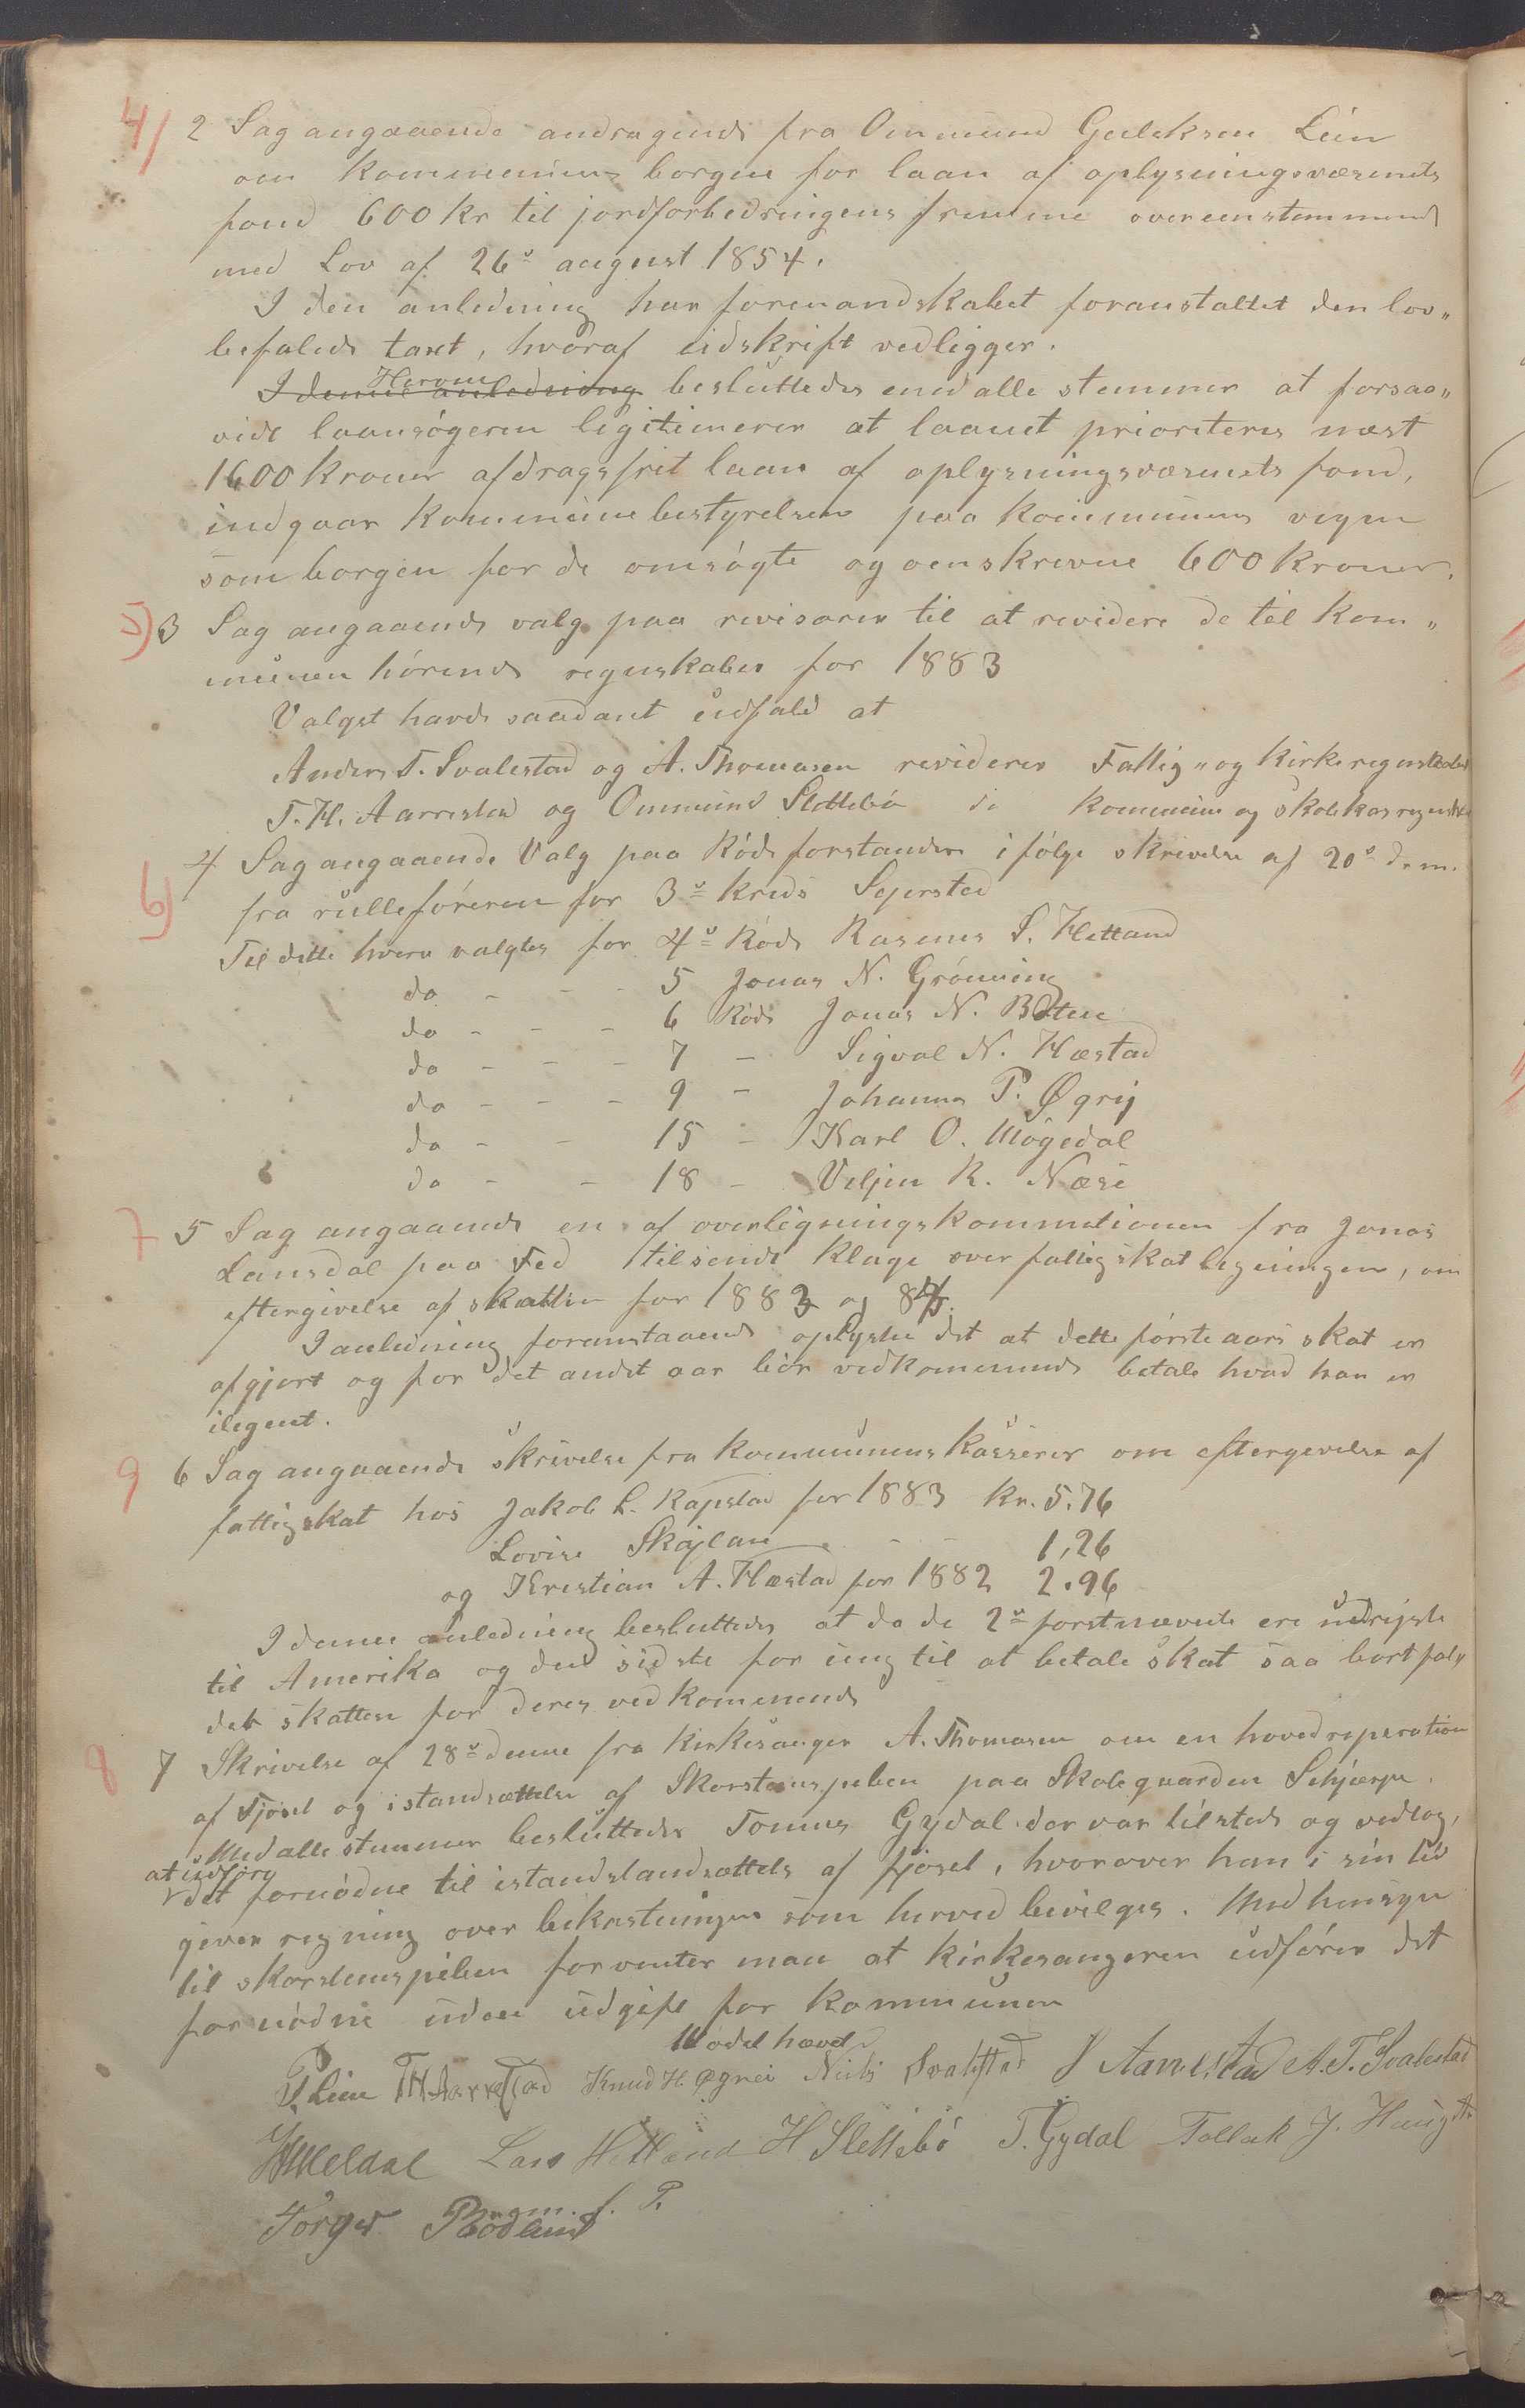 4/ 2 Sag angaaende andragende fra Ommund Gulaksen Lein
om kommunens borgen for laan af oplysningsvæsenets
fond 600 kr til jordforbedringens fremme overeenstemmende
med Lov af 26de august 1854.
I den anledning har formandskabet foranstaltet den lov„
befalede taxt, hvoraf udskrift vedligger.
I denne anledning Herom besluttedes med alle stemmer at forsaa„
vidt laansøgeren legitimerer at laanet prioriteres næst
1600 kroner afdragsfrit laan af oplysningsvæsenets fond,
indgaar kommunebestyrelsen paa kommunens vegne
som borgen for de omsøgte og omskrevne 600 kroner.
5) 3 Sag angaaende valg paa revisorer til at revidere de til kom„
munen hørende regnskaber for 1883
Valget havde saadant udfald at
Anders T. Svalestad og A. Thomasen reviderer Fattig„ og kirkeregnskabet
T. H. Aarrestad og Ommund Slettebø do kommune og skolekasregnskab
6) 4 Sag angaaende Valg paa Rodeforstandere ifølge skrivelse af 20de d. m.
fra rulleføreren for 3de kreds Sejersted
Til dette hverv valgtes for 4de Rode Rasmus S. Hetland
do - - - 5 Jonas N. Grønning
do - - - 6 Rode Jonas N. Botne
do - - - 7 - Sigval N. Hæstad
do - - - 9 - Johannes P. Øgrej
do - - 15 - Karl O. Møgedal
do - - 18 - Veljen R. Næse
7 5 Sag angaaende en af overligningskommitionen fra Jonas
Lansdal paa Fed tilsendt klage over fattigskatlegningen, om
eftergivelse af skatten for 1883 og 84.
I anledning foranstaaende oplystes det at dette første aars skat er
afgjort og for det andet aar bør vedkommende betale hvad han er
ilegnet.
9 6 Sag angaaende skrivelse fra kommunens kasserer om eftergivelse af
fattigskat hos Jakob L. Kapstad for 1883 kr. 5.76
Lovise Skajlan - - 1,26
og Kristian A. Hæstad for 1882 2.96
I denne anledning besluttedes at da de 2de førstnævnte ere udrejste
til Amerika og den sidste for ung til at betale skat saa bortfal„
der skatten for deres vedkommende
8 7 Skrivelse af 28de denne fra kirkesanger A. Thomasen om en hovedreperation
af Fjøset og istandsættelse af Skorstenspiben paa Skolegaarden Schjærpe.
Med alle stemmer besluttedes Tomas Gydal der var tilstede og vedtog,
at udføre
det fornødne til istandstandsættels af fjøset, hvorover han i sin tid
giver regning over bekostningen som herved bevilges. Med hensyn
til skorstenspiben forventer man at kirkesangeren udfører det
fornødne uden udgift for kommunen
Modet hævet
P. Lein TH Aarrestad Knud H. Øgrei Niels Svalestad J Aarrestad A. T. Svalestad
Lars Hetland H Slettebø T. Gydal Tollak J. Haugst
Torger Rødland m. f. P.